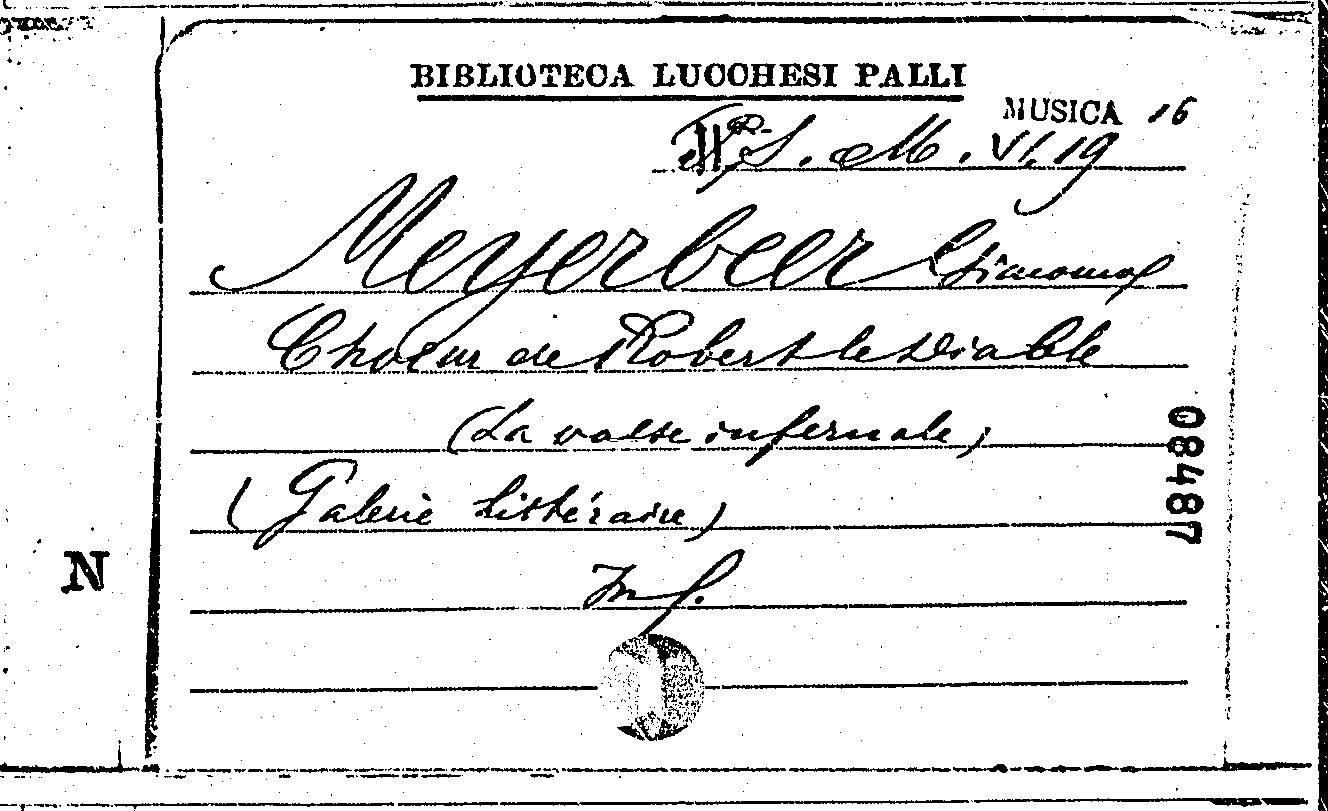 BIBLIOTECA LUCCHESI PALLI
MUSICA 16
S. M. VI. 19
Meyerbeer Giacomo
Choeur de Robert le Diable
(La valse infernale)
(Galerie Littéraire)
In f.
08487
N